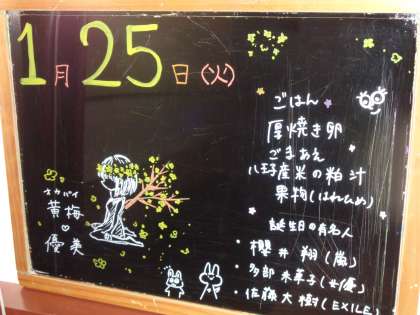 1月25日(火)
ごはん
厚焼き卵
ごまあえ
八王子産米の粕汁
果物(はれひめ)
誕生日の有名人
・櫻井 翔(嵐)
・多部未華子(女優)
・佐藤大樹(EXILE)
オウバイ
黄梅
優美